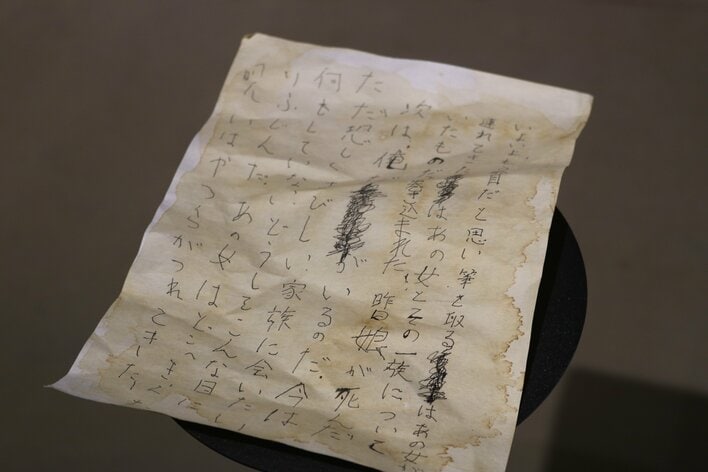 いよいよ駄目だと思い筆を取る はあの女が
連れてきた はあの女とその一族について
いたものだ巻込まれた。昨日娘が死んだ
次は俺だ がいるのだ。今は
ただ恐ろしくさびしい家族に会いたい
何もしていないどうしてこんな目に
りふじんだ。あの女はどこへ
呪いはやつらがつれてきた